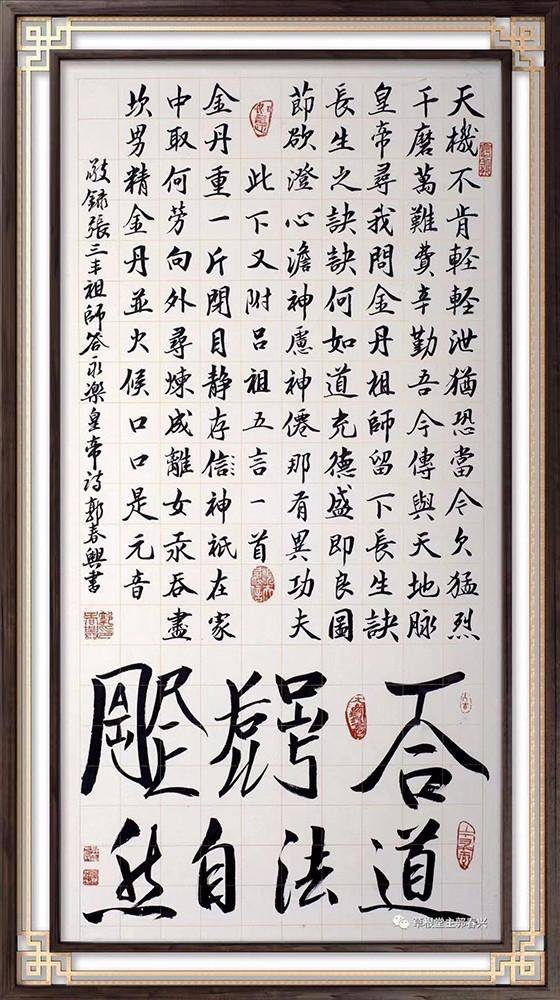 天機不肯輕輕泄猶恐當今欠猛烈
千磨萬難費辛勤吾今傳與天地脉
皇帝尋我問金丹祖師留下長生訣
長生之訣訣何如道充德盛即良圖
節欲澄心澹神慮神僊那有異功夫
此下又附吕祖五言一首
金丹重一斤閉目静存信神祇在家
中取何劳向外尋煉成離女汞吞盡
坎男精金丹並火候口口是元音
敬録張三丰祖師答永樂皇帝诗郭春興書
道法自然
草根堂主郭春兴